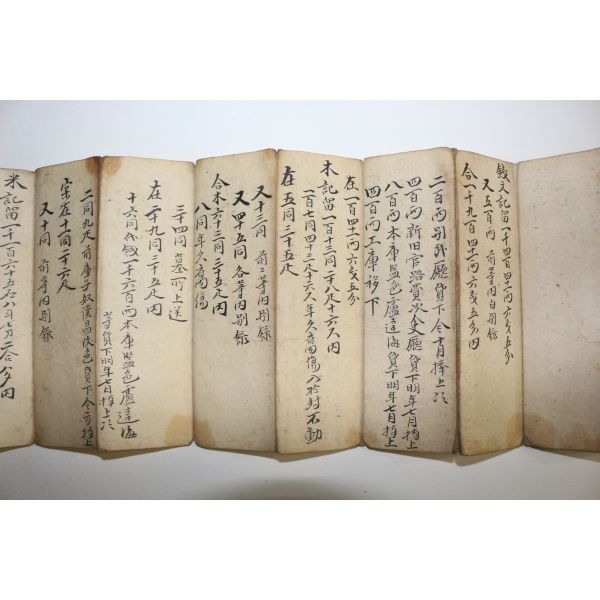 錢文記留一千四百四十一兩六戔五分
又五百兩 前等內別錄
合一千九百四十一兩六戔五分內
二百兩別武廳貸下今十月捧上次
四百兩新旧官路貲次人吏廳貸下明年七月捧上
八百兩本庫監色盧達海貸下明年七月捧上
四百兩工庫移下
在一百四十一兩六戔五分
木記留一百十三同二十八疋十六尺內
一百七同四十三疋十六尺年久腐傷入於封不動
在五同三十五疋
又十三同 前二等內別錄
又四十五同 各等內別錄
合木六十三同三十五疋內
八同年久腐傷
三十四同 墓所上送
在二十九同三十五疋內
十六同代錢一千六百兩本庫監色盧達海
等貸下明年七月捧上次
二同九疋前庫子奴漢昌 色貸下今 捧上
實在十一同二十六疋
又十同 前等內別錄
米記留一千一百六十五石八斗七升二合 夕內